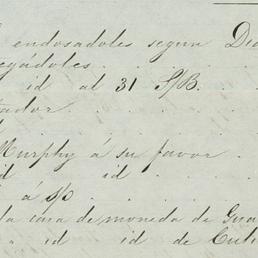 endosadoles segun
egádoles
id al 31 S/B.
tador
Murphy á su favor
id id
á s/o
la casa de moneda de Gua
id id de Culi